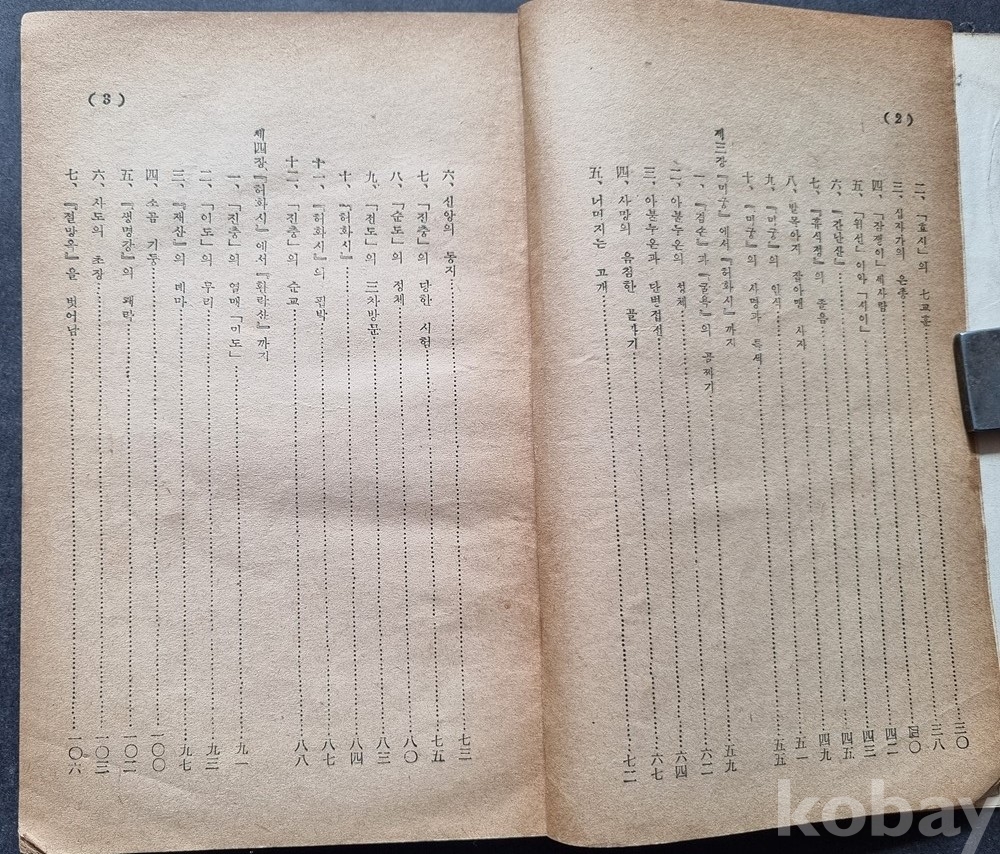 (2)
二、「효시」의 七교훈……三〇
三、십자가의 은총……三八
四、「잠정이」세사람……四〇
五、「위선」이와「시이」……四二
六、『간난산』……四三
七、『휴식정』의 졸음……四五
八、발목아지 잡아맨 사자……四九
九、『미궁』의 안식……五一
十、『미궁』의 사명과 특색……五五
제三장『미궁』에서『허화시』까지
一、『겸손』과『굴욕』의 골짜기……五九
二、아볼루온의 정체……六二
三、아볼누온과 단병접전……六四
四、사망의 음침한 골짜기……六七
五、너머지는 고개……七二
(3)
六、신앙의 동지……七三
七、『진충』의 당한 시험……七五
八、『순도』의 정체……八〇
九、『전도』의 三차방문……八三
十、『허화시』……八四
十一、『허화시』의 핍박……八七
十二、『진충』의 순교……八八
제四장『허화시』에서『환락산』까지
一、『진충』의 열매『미도』……九一
二、『이도』의 무리……九三
三、『재산』의 데마……九七
四、소곰 기둥……一〇〇
五、『생명강』의 쾌락……一〇二
六、사도의 초장……一〇三
七、『절망옥』을 벗어남……一〇六
kobay